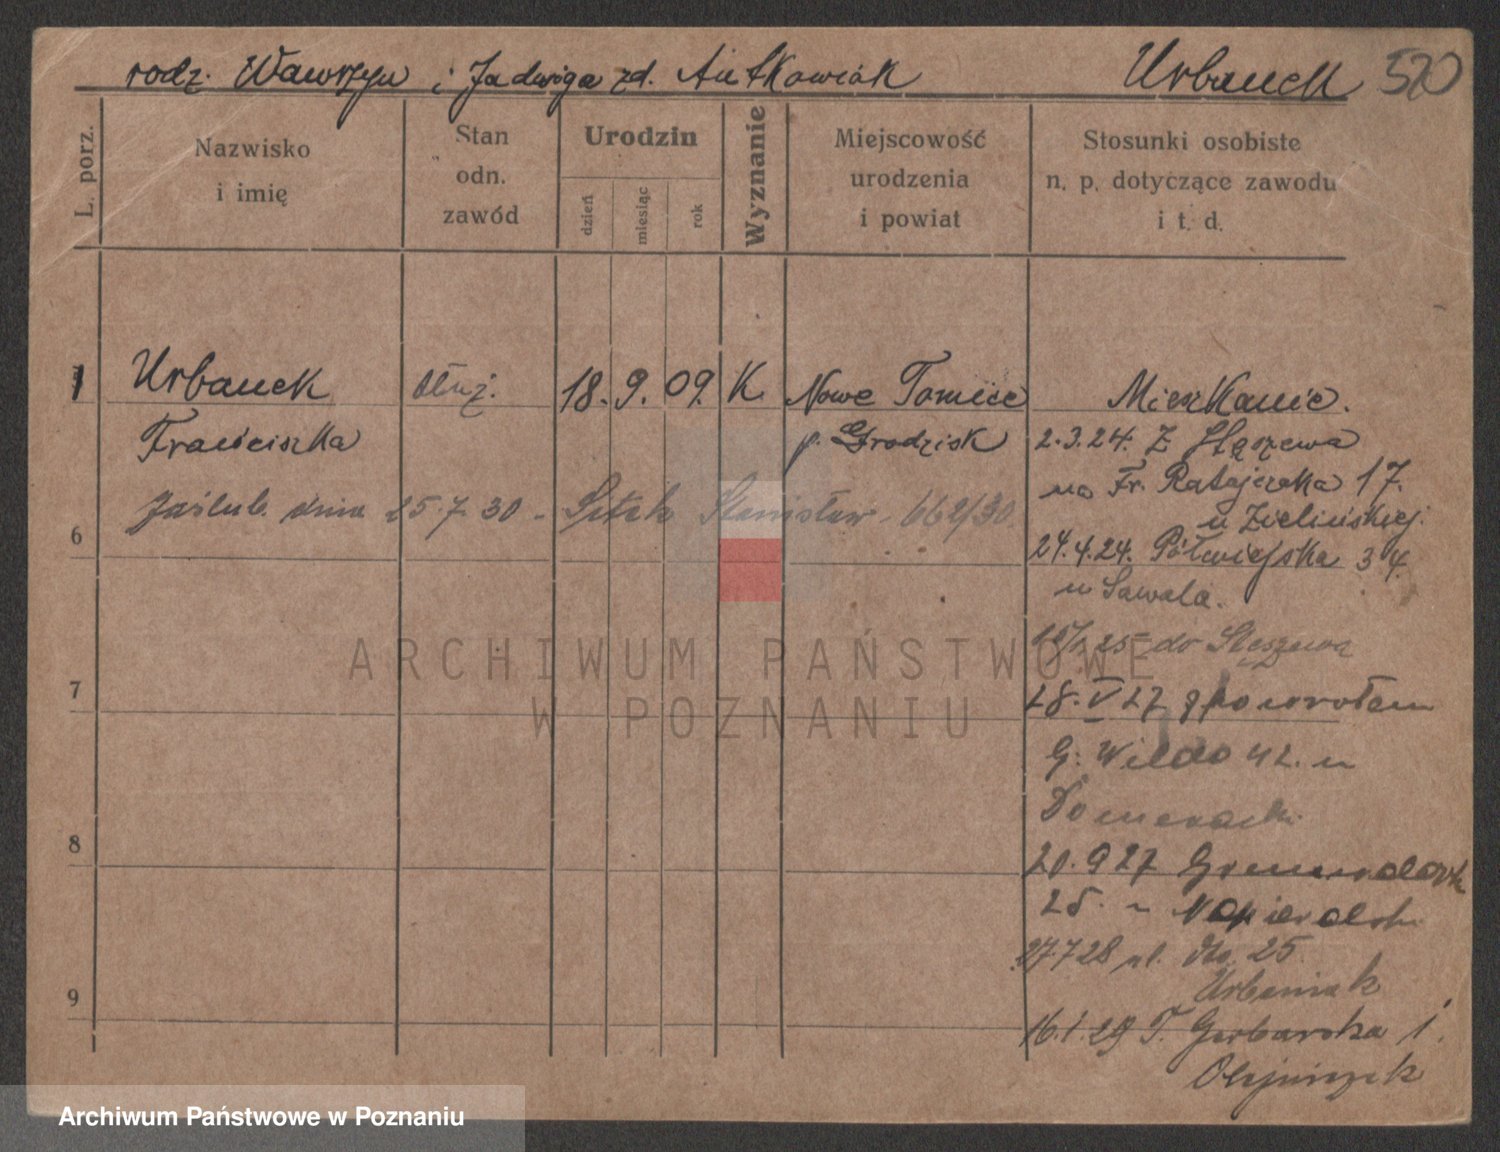 rodz. Wawrzyn i Jadwiga zd. Antkowiak Urbanek 520
L. porz.
Nazwisko
i imię
Stan
odn.
zawód
Urodzin
dzień
miesiąc
rok
Wyznanie
Miejscowość
urodzenia
i powiat
Stosunki osobiste
n. p. dotyczące zawodu
i t. d.
1 Urbanek służ. 18. 9. 09. K. Nowe Tomice Mieszkanie.
Franciszka p. Grodzisk 2.3.24. Z Stęszewa
na Fr. Ratajczaka 17.
u Zielińskiej.
Zaślub. dnia 25.7.30 - Stanisław 662/30.
6
24.4.24. Półwiejska 34.
u Sawala.
25 do Stęszewa
7
28. V 27 z powrotem
G. Wilda 42. u
8
20.9 27 Grunwaldzk
25. - Napieralsk.
27 7 28 25.
Urbaniak
9
16.1.29 T. Garbarska 1.
Olejniczak
ARCHIWUM PAŃSTWOWE
W POZNANIU
Archiwum Państwowe w Poznaniu